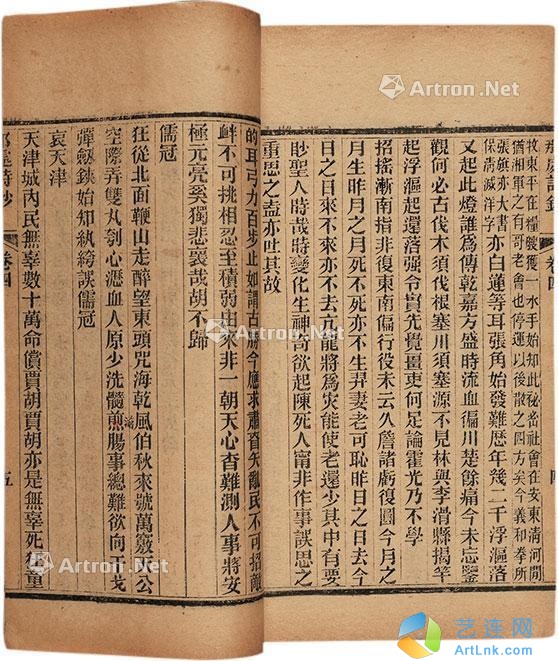 卷四
四
牧東平在糧艘獲一水手始知此祕密社會在安東清河間
猶湘軍之有哥老會也停運以後散之四方矣今義和拳所
張旗亦大書
保清滅洋字
亦白蓮等耳張角始發難歷年幾二千浮漚落
又起此燈誰為傳乾嘉方盛時流血徧川楚餘痛今未忘鑒
觀何必古伐木須伐根塞川須塞源不見林與李滑縣揭竿
起浮漚起還落强令貫光覺曇吏何足論霍光乃不學
招搖漸南指非復東南偏行役未云久詹諸虧復圓今月之
月生昨月之月死不死亦不生羿妻老可恥昨日之日去今
日之日來不來亦不去方龍將為災能使老還少其中有要
眇聖人時哉時變化生神奇欲起陳死人甯非作事誤思之
重思之盍亦世其故
的耳弓力百步止如謂古勝今應求肅矢亂民不可招敵
衅不可挑相忍至積弱由來非一朝天心杳難測人事將安
極元奚獨悲哉胡不歸
儒冠
狂從北面鞭山走醉望東頭咒海乾風伯秋來號萬竅公
空際弄雙丸刳心瀝血人原少洗髓煎腸事總難欲向戈
彈鋏始知紈誤儒冠
哀天津
天津城內民無辜數十萬命償賈胡賈胡亦是無辜死量
詩鈔
卷四
五
Artron.Net
Artron.Net
Artron.Net
Artron.Net
艺连网
ArtLnk.com